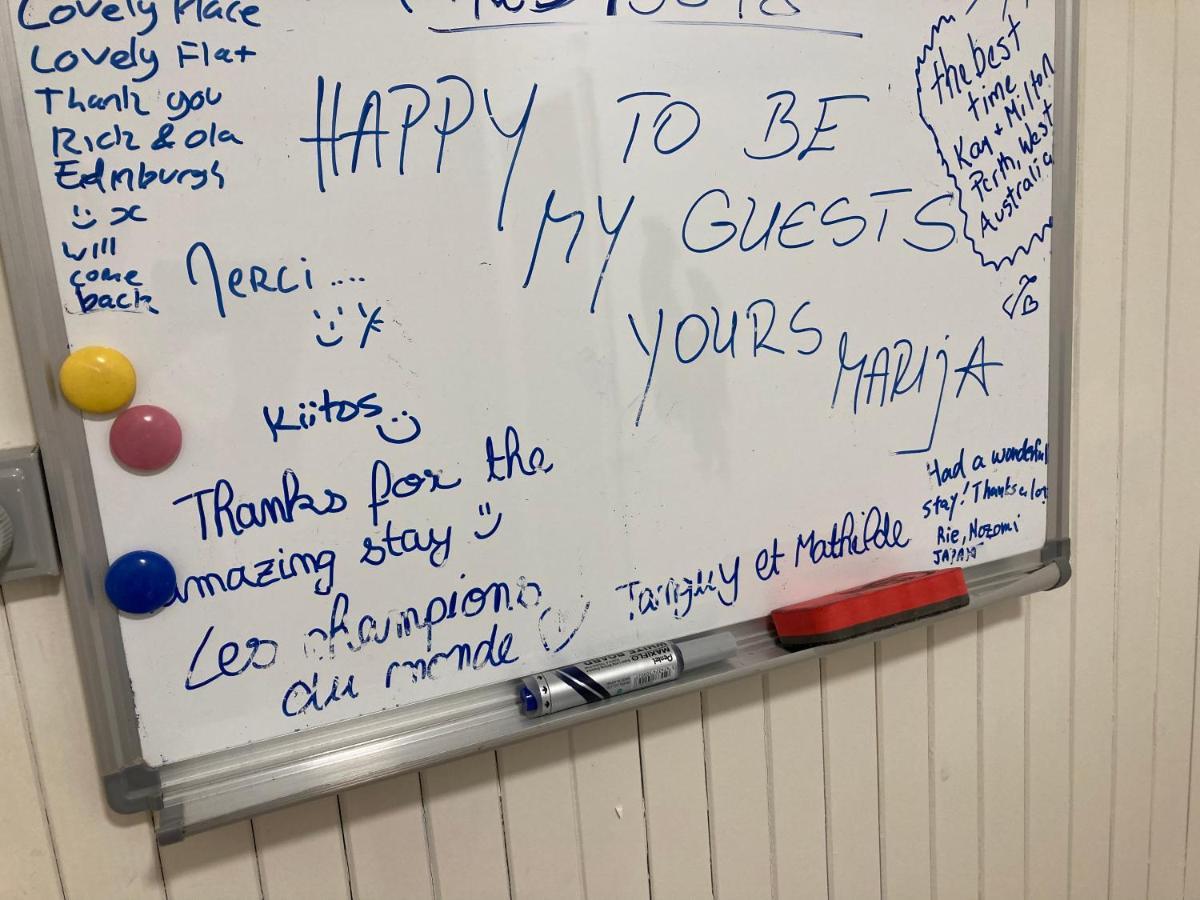 Lovely Place
Lovely Flat
Thank you
Rick & Ola
Edinburgh
will
come
back
HAPPY TO BE
MY GUESTS
YOURS
MARIJA
the best
time
Kay + Milton
Perth, West
Australia
Merci....
Kiitos
Thanks for the
amazing stay
Les champions
du monde
Tanguy et Mathilde
Had a wonderful
stay! Thanks a lot
Rie, Nozomi
JAPAN
Pentel
MAXIFLO
WHITE BOARD